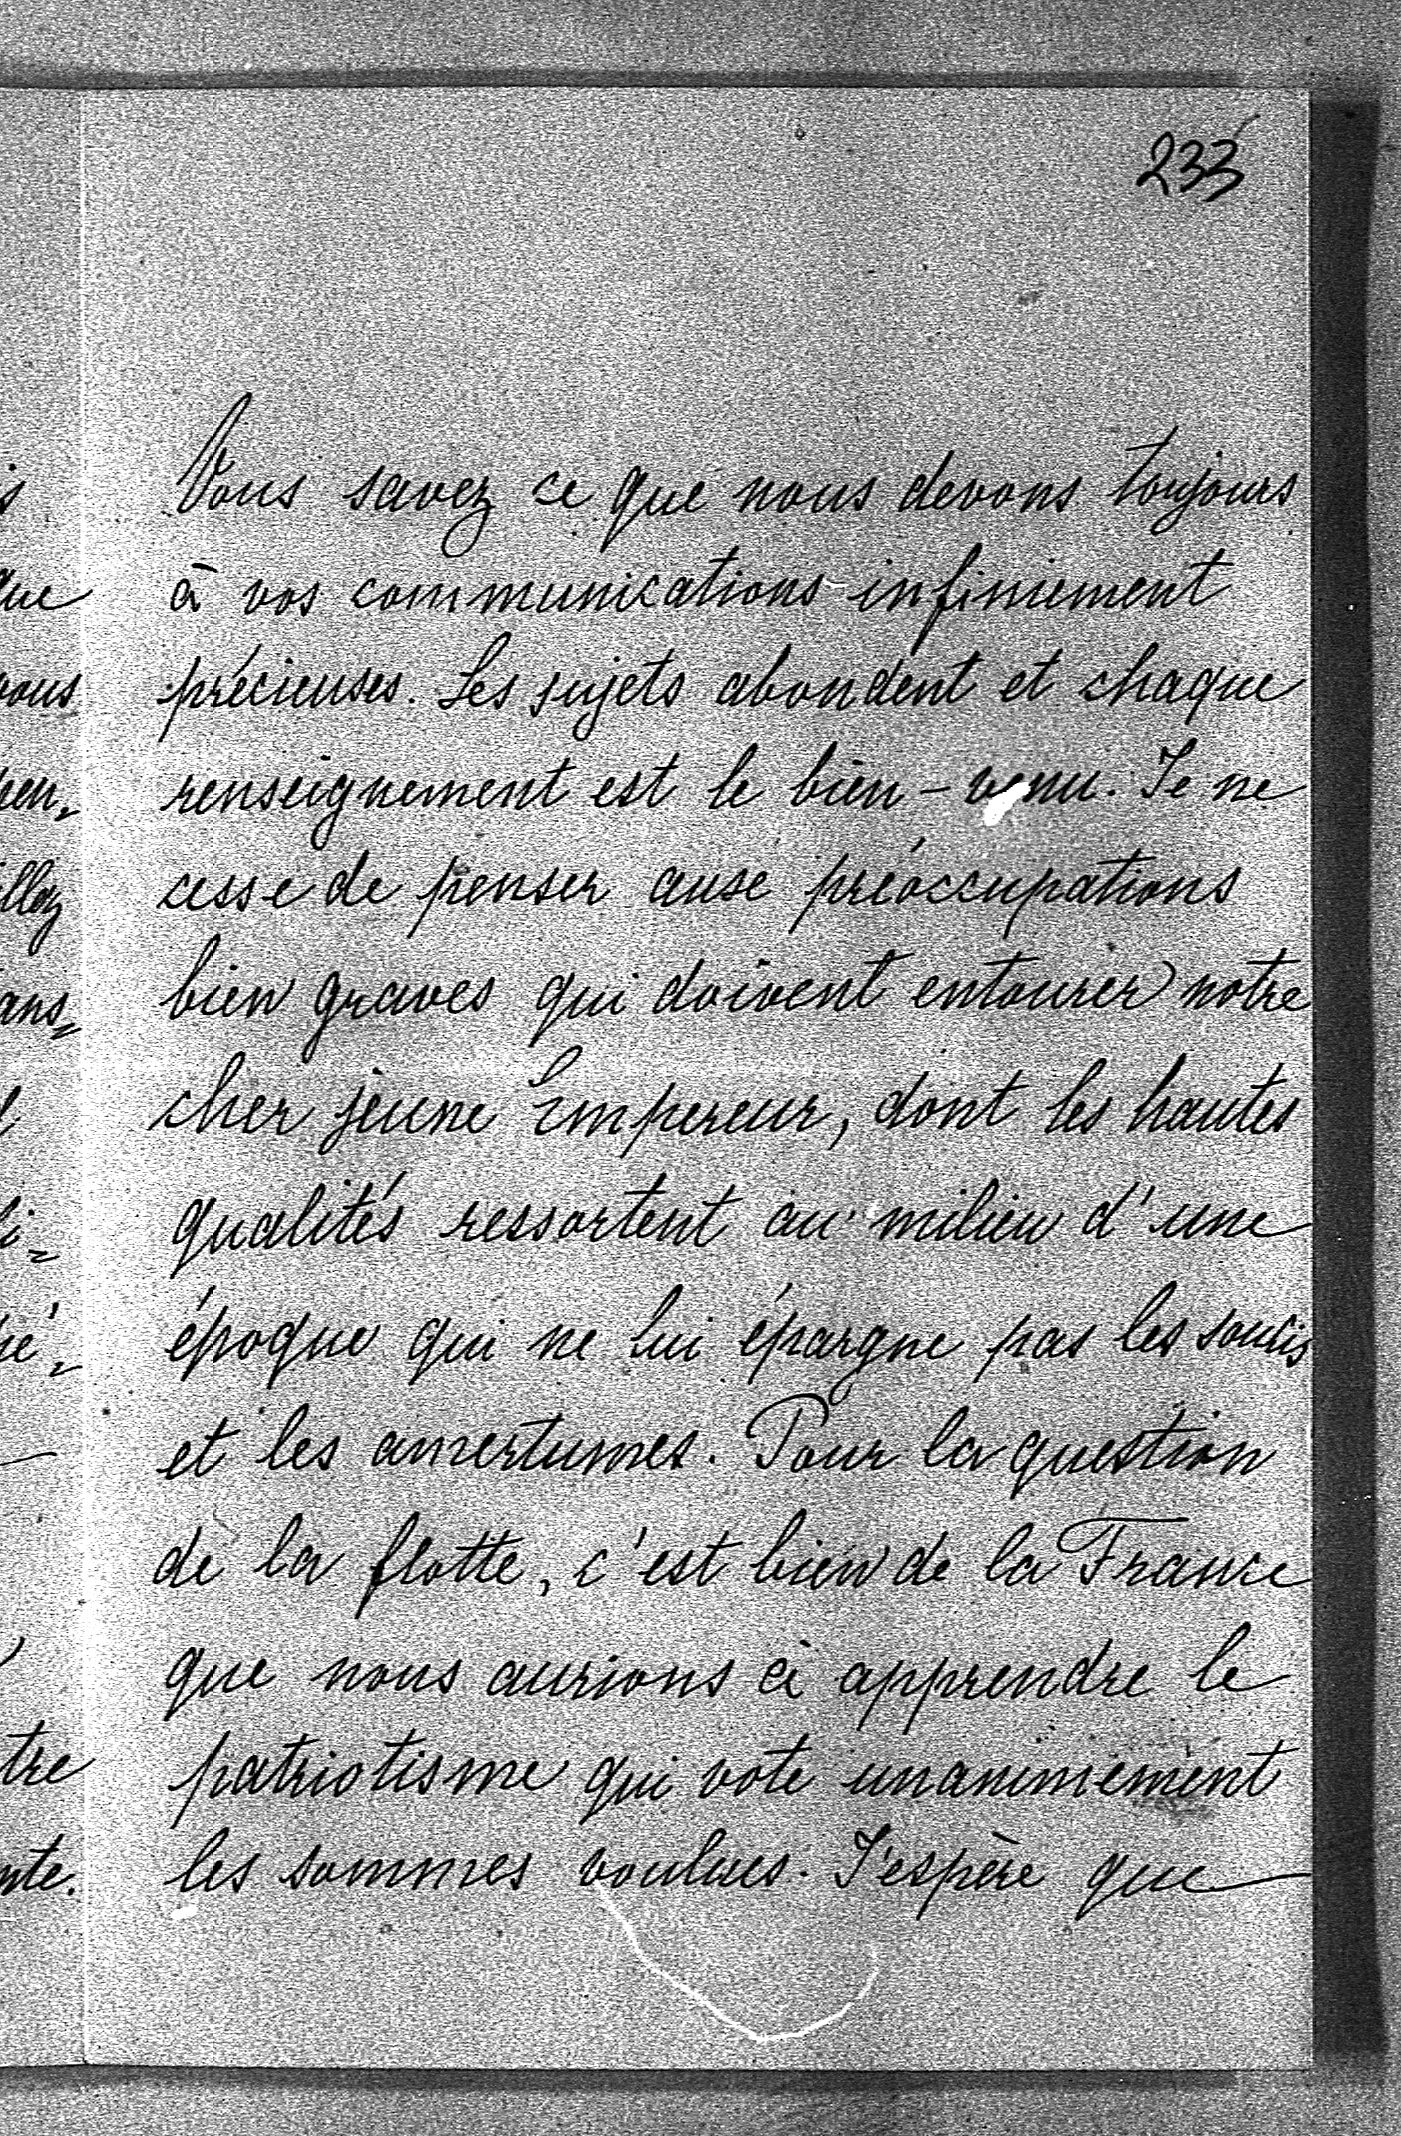 233
Vous savez ce que nous devons toujours
à vos communications infiniement
précieuses. Les sujets abondent et chaque
renseignement est le bien-venu. Je ne
cesse de penser aux préoccupations
bien graves qui doivent entourer notre
cher jeune Empereur, dont les hautes
qualités ressortent au milieu d'une
époque qui ne lui épargne pas les soucis
et les amertumes. Pour la question
de la flotte, c'est bien de la France
que nous aurions à apprendre le
patriotisme qui vote unanimement
les sommes voulues. J'espère que